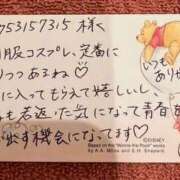 753157315 様
制服コスプレ、定番に
りつつあるね♡
に入ってもらえて嬉しいし
も若返った気になって青春を
い出す機会になってます♡
いつも
ありが
©DISNEY
Based on the "Winnie the Pooh" works
by A.A. Milne and E.H. Shepard.